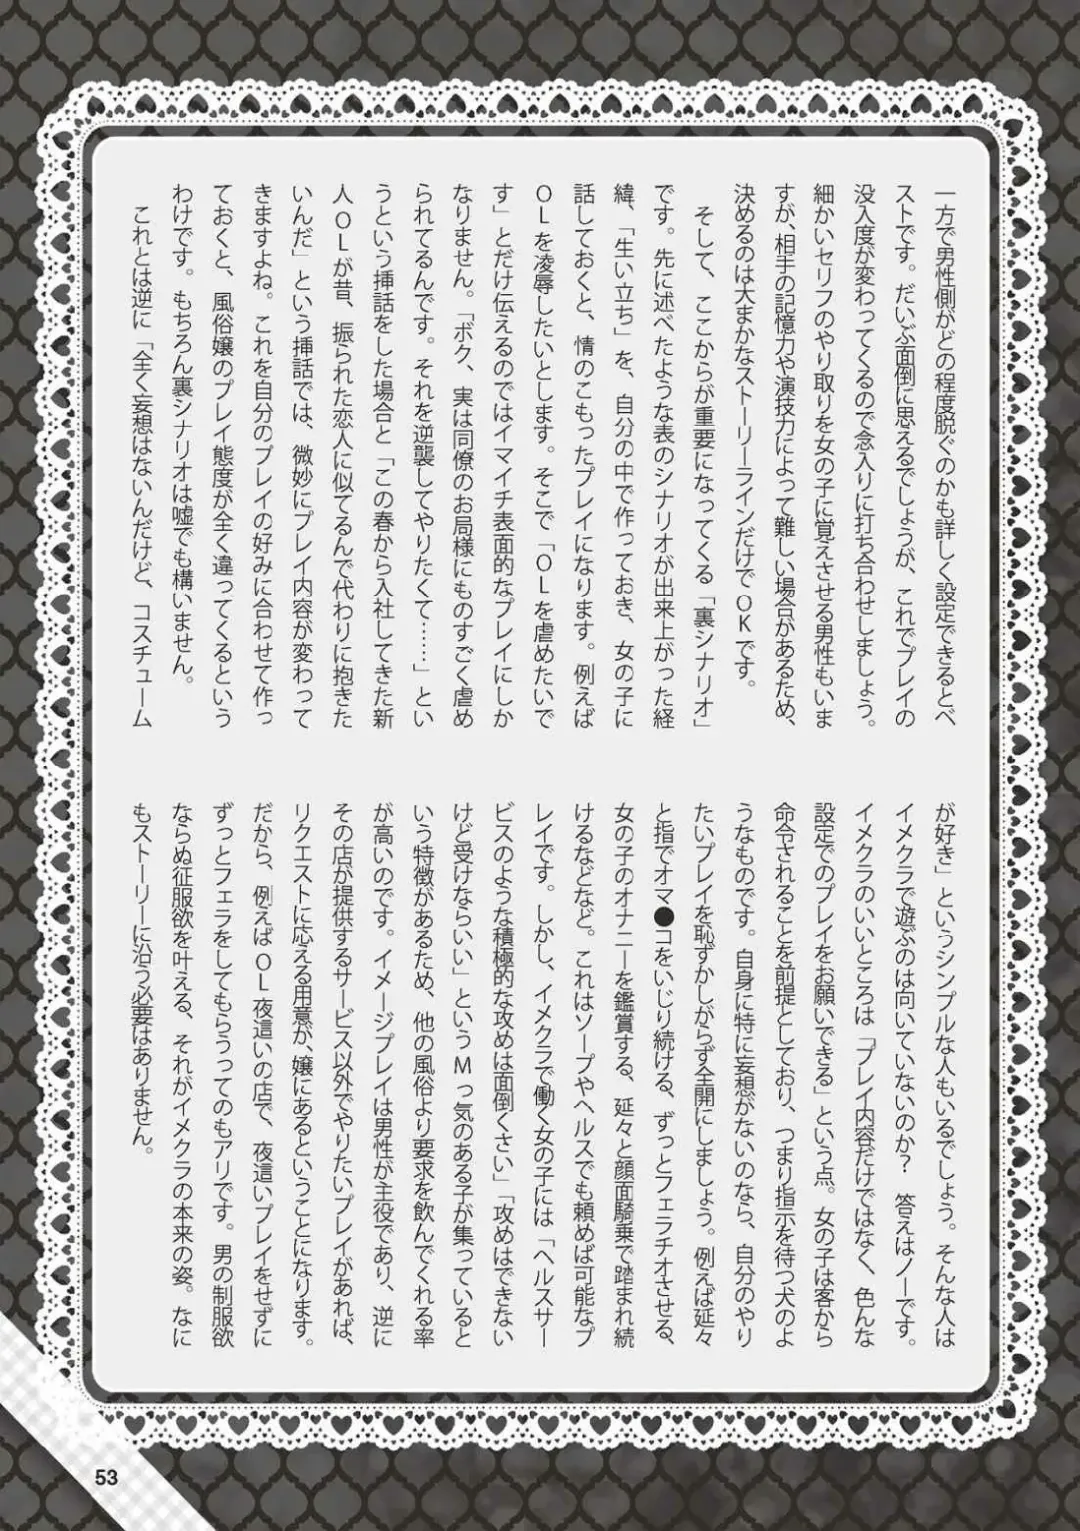 一方で男性側がどの程度脱ぐのかも詳しく設定できるとベ
ストです。だいぶ面倒に思えるでしょうが、これでプレイの
没入度が変わってくるので念入りに打ち合わせしましょう。
細かいセリフのやり取りを女の子に覚えさせる男性もいま
すが、相手の記憶力や演技力によって難しい場合があるため、
決めるのは大まかなストーリーラインだけでOKです。
そして、ここからが重要になってくる「裏シナリオ」
です。先に述べたような表のシナリオが出来上がった経
緯、「生い立ち」を、自分の中で作っておき、女の子に
話しておくと、情のこもったプレイになります。例えば
OLを凌辱したいとします。そこで「OLを虐めたいで
す」とだけ伝えるのではイマイチ表面的なプレイにしか
なりません。「ボク、実は同僚のお局様にものすごく虐め
られてるんです。それを逆襲してやりたくて……」とい
うという挿話をした場合と「この春から入社してきた新
人OLが昔、振られた恋人に似てるんで代わりに抱きた
いんだ」という挿話では、微妙にプレイ内容が変わって
きますよね。これを自分のプレイの好みに合わせて作っ
ておくと、風俗嬢のプレイ態度が全く違ってくるという
わけです。もちろん裏シナリオは嘘でも構いません。
これとは逆に「全く妄想はないんだけど、コスチューム
が好き」というシンプルな人もいるでしょう。そんな人は
イメクラで遊ぶのは向いていないのか？　答えはノーです。
イメクラのいいところは「プレイ内容だけではなく、色んな
設定でのプレイをお願いできる」という点。女の子は客から
命令されることを前提としており、つまり指示を待つ犬のよ
うなものです。自身に特に妄想がないのなら、自分のやり
たいプレイを恥ずかしがらず全開にしましょう。例えば延々
と指でオマ●コをいじり続ける、ずっとフェラチオさせる、
女の子のオナニーを鑑賞する、延々と顔面騎乗で踏まれ続
けるなどなど。これはソープやヘルスでも頼めば可能なプ
レイです。しかし、イメクラで働く女の子には「ヘルスサー
ビスのような積極的な攻めは面倒くさい」「攻めはできない
けど受けならいい」というMっ気のある子が集っていると
いう特徴があるため、他の風俗より要求を飲んでくれる率
が高いのです。イメージプレイは男性が主役であり、逆に
その店が提供するサービス以外でやりたいプレイがあれば、
リクエストに応える用意が、嬢にあるということになります。
だから、例えばOL夜這いの店で、夜這いプレイをせずに
ずっとフェラをしてもらうってのもアリです。男の制服欲
ならぬ征服欲を叶える、それがイメクラの本来の姿。なに
もストーリーに沿う必要はありません。
53